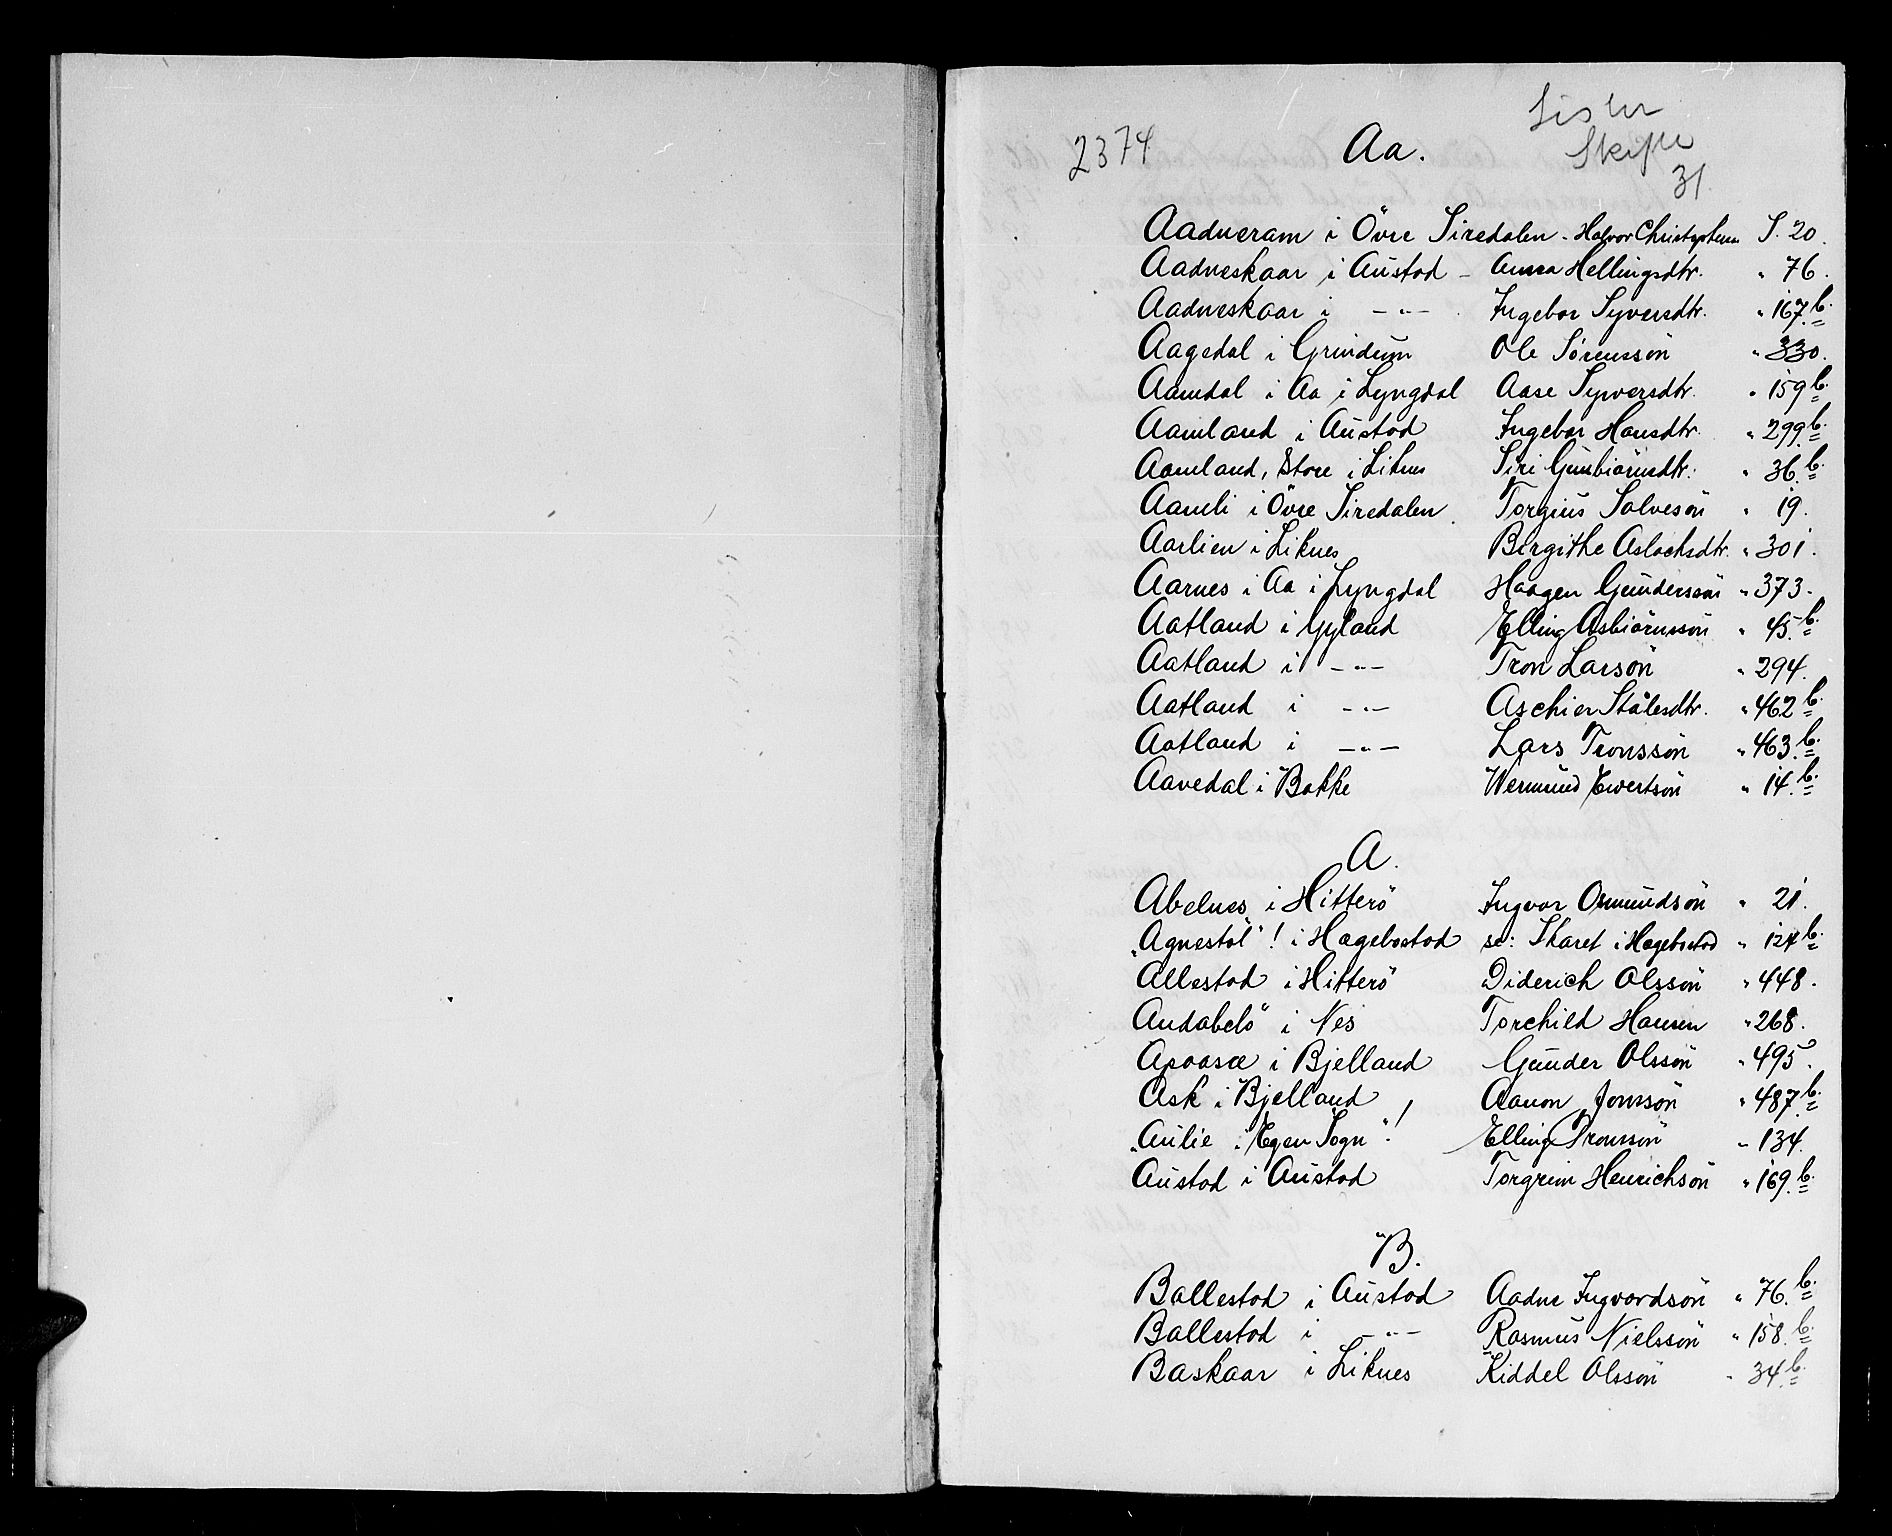 Lister
2374 Aa. Skifte
31
Aadneram i Övre Siredalen - Halvor Christophersen S. 20.
Aadneskaar i Austad - Anna Hellingsdtr. " 76.
Aadneskaar i -"- Ingebor Syversdtr. " 167.b.
Aagedal i Grindum Ole Sörenssön " 330.
Aamdal i Aa i Lyngdal Aase Syversdtr. " 159.b.
Aamland i Austad Ingebor Hansdtr. " 299.b.
Aamland, Store i Liknes Siri Gunbiörnsdtr. " 36.b.
Aamli i Övre Siredalen Torgius Salvesön " 19.
Aarlien i Liknes Birgithe Aslachsdtr. " 301.
Aarnes i Aa i Lyngdal Haagen Gunderssön " 373.
Aatland i Gyland Elling Asbiörnssön " 45.b.
Aatland i -"- Tron Larsön " 294.
Aatland i -"- Aschier Stålesdtr. " 462.b.
Aatland i -"- Lars Tronssön " 463.b.
Aavedal i Bakke Wermund Evertsön " 14.b.
A.
Abelnes i Hitterö Ingvar Omundsön " 21.
"Agnestöl"! i Hægebostad se: Skaret i Hægebostad " 124.b.
Allestad i Hitterö Diderich Olssön " 448.
Andabelö i Nes Torchild Hansen " 268.
Apaasæ i Bjelland Gunder Olssön " 495.
Ask i Bjelland Aanon Jonssön " 487.b.
"Aulie i Egen Sogn"! Elling Tronssön " 134.
Austad i Austad Torgrim Henrichsön " 169.b.
B.
Ballestad i Austad Aadne Ingvardsön " 76.b.
Ballestad i -"- Rasmus Nielssön " 158.b.
Baskaar i Liknes Kiddel Olssön " 34.b.